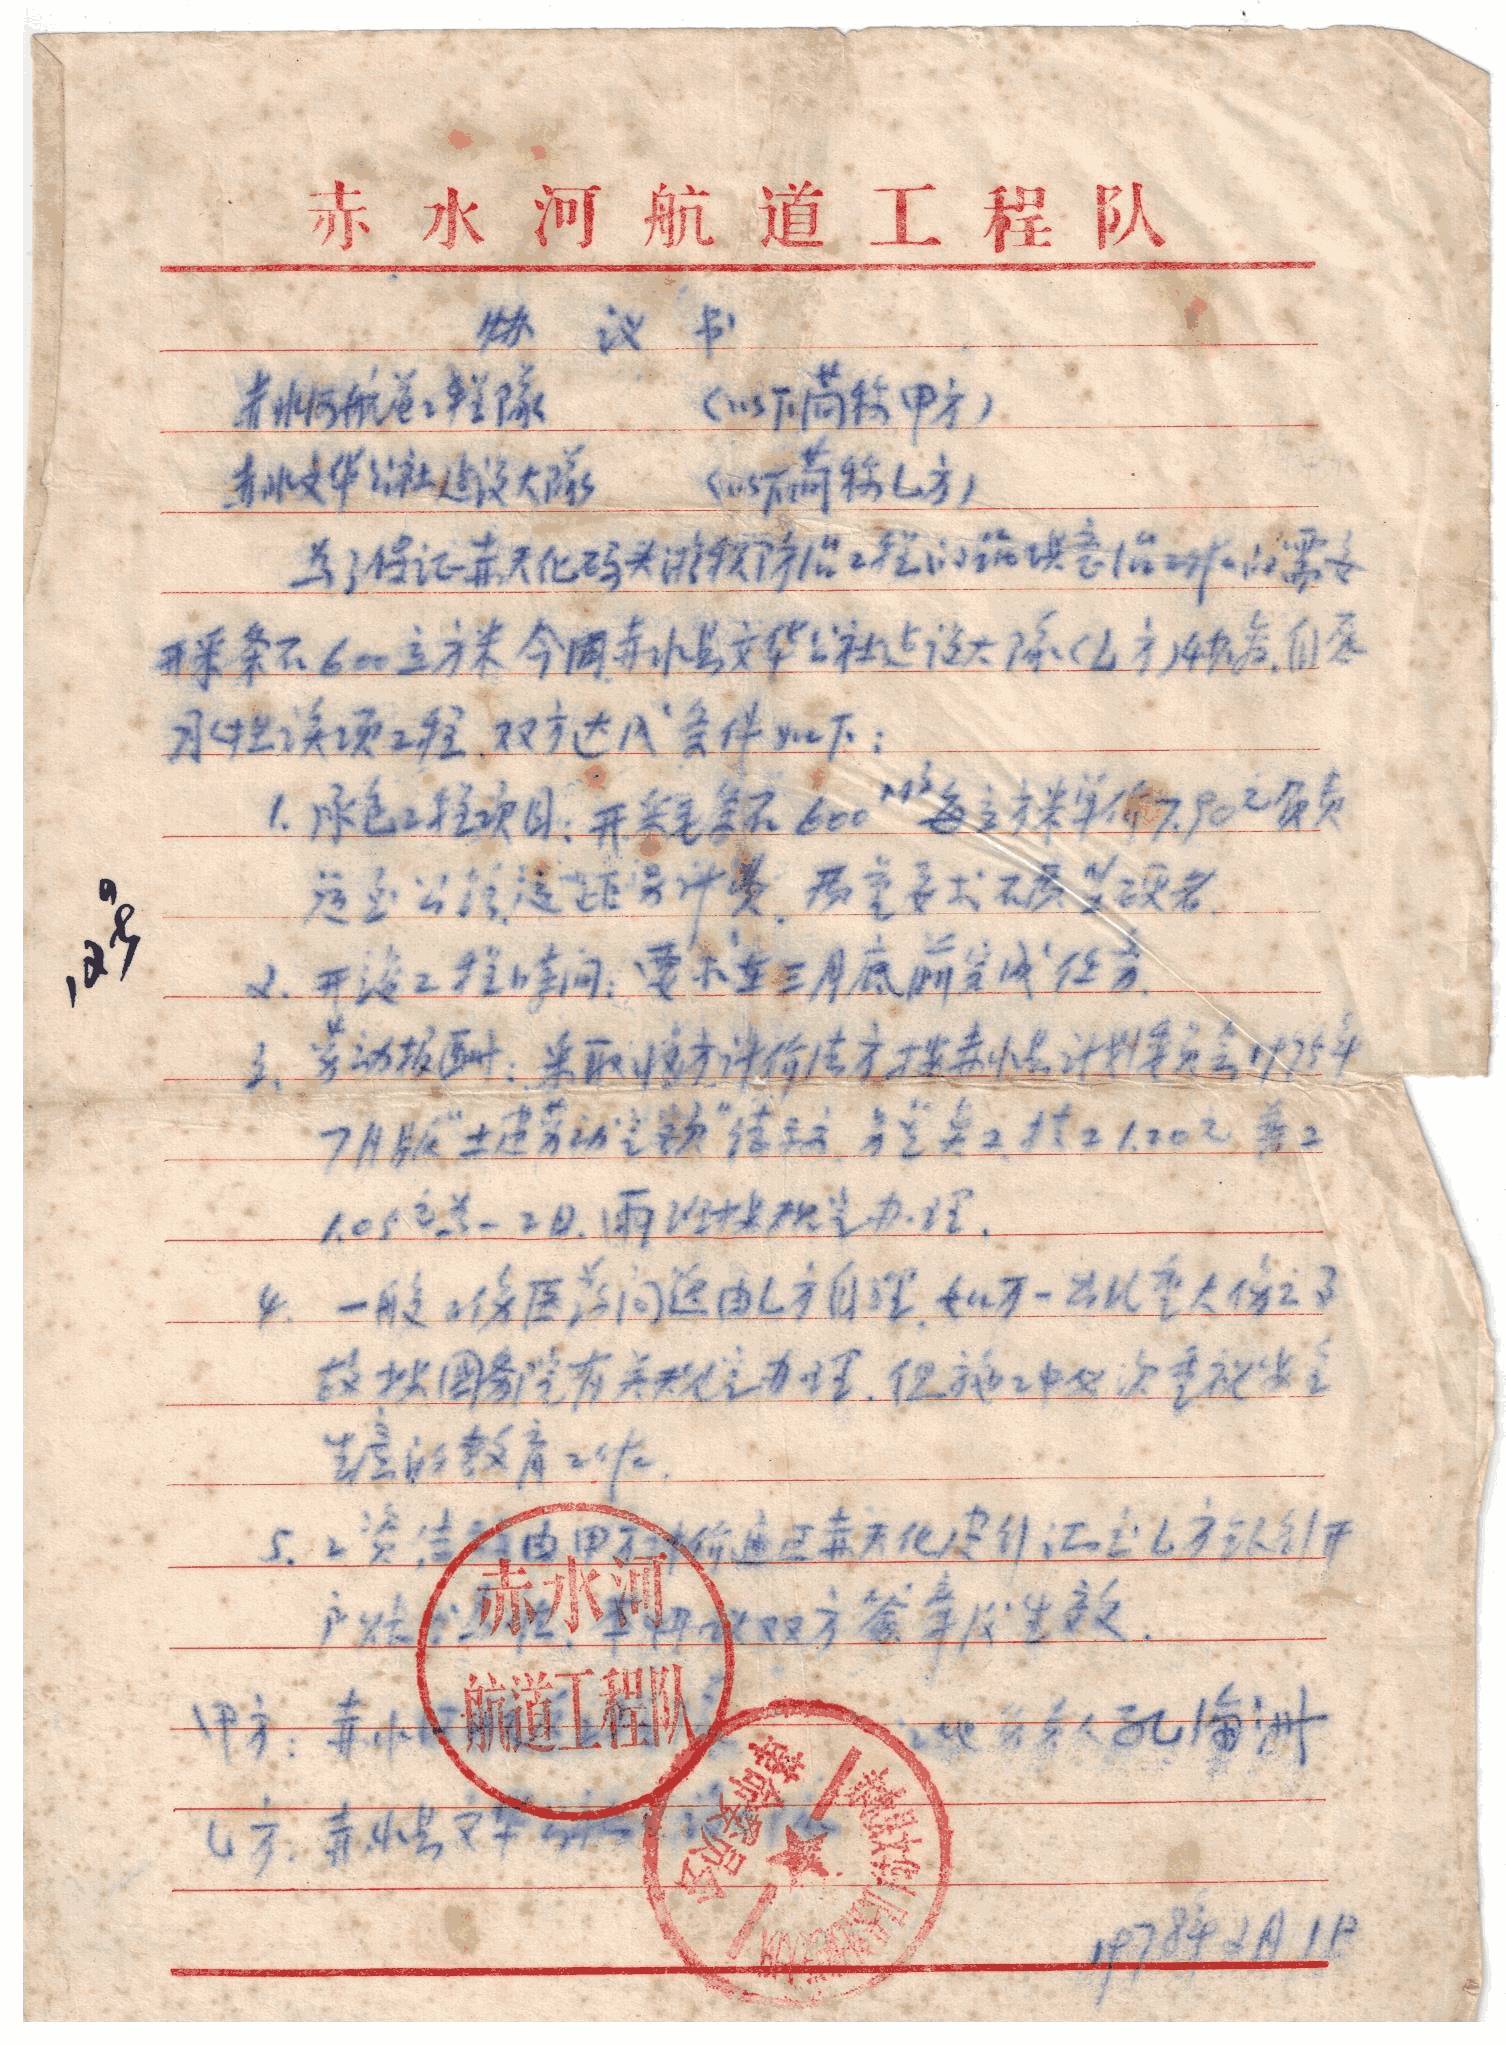 赤水河航道工程队
协议书
赤水河航道工程隊 (以下简称甲方)
赤水文华公社建设大隊 (以下简称乙方)
为了保证赤天化码头滑坡防治工程的需要
开采条石600立方米 今同赤水县文华公社建设大隊(乙方)协商,自愿
承担该项工程,双方达成条件如下:
1. 承包工程项目:开采毛条石600M³每立方米单价7.90元负责
运至公路,运距另计费,质量要求石质坚硬者.
2. 开竣工程时间:要求在三月底前完成任务.
3. 劳动报酬:采取按方计价结方按赤水县计划委员会1975年
7月版"土建劳动定额"结方 技工1.20元 普工
1.05元为一工日.雨班按规定办理.
4. 一般工伤医药问题由乙方自理,如万一出现重大伤亡事
故按国务院有关规定办理,但施工中必须重视安全
生产的教育工作.
5. 工资结 由甲方 通过赤天化 汇至乙方银行开
户 双方签章后生效.
甲方:赤水河 工地负责人 孔 洲
乙方:赤水县文华公社
1978年2月1日
12号
赤水河
航道工程队
革命委员会